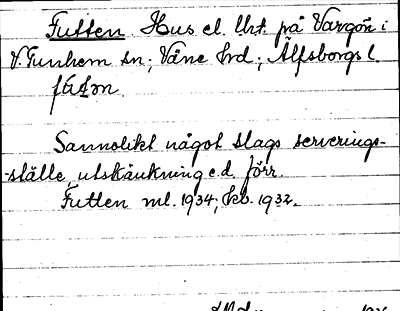 Futten. Hus el. lht. på Vargön i
V. Tunhem sn; Väne hrd; Älfsborgs l.
Sannolikt något slags serverings-
ställe, utskänkning e.d. förr.
Futten ml. 1934; kb. 1932.